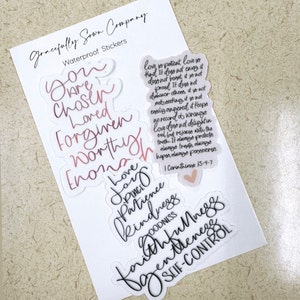 Gracefully Sown Company
Waterproof Stickers
you
are
Chosen
Loved
Forgiven
Worthy
Enough
Love is patient, love is
kind. It does not envy, it
does not boast, it is not
proud. It does not
dishonor others, it is not
self-seeking, it is not
easily angered, it keeps
no record of wrongs.
Love does not delight in
evil but rejoices with the
truth. It always protects,
always trusts, always
hopes, always perseveres.
1 Corinthians 13:4-7
Love
Joy
Peace
Patience
kindness
GOODNESS
faithfulness
gentleness
SELF-CONTROL